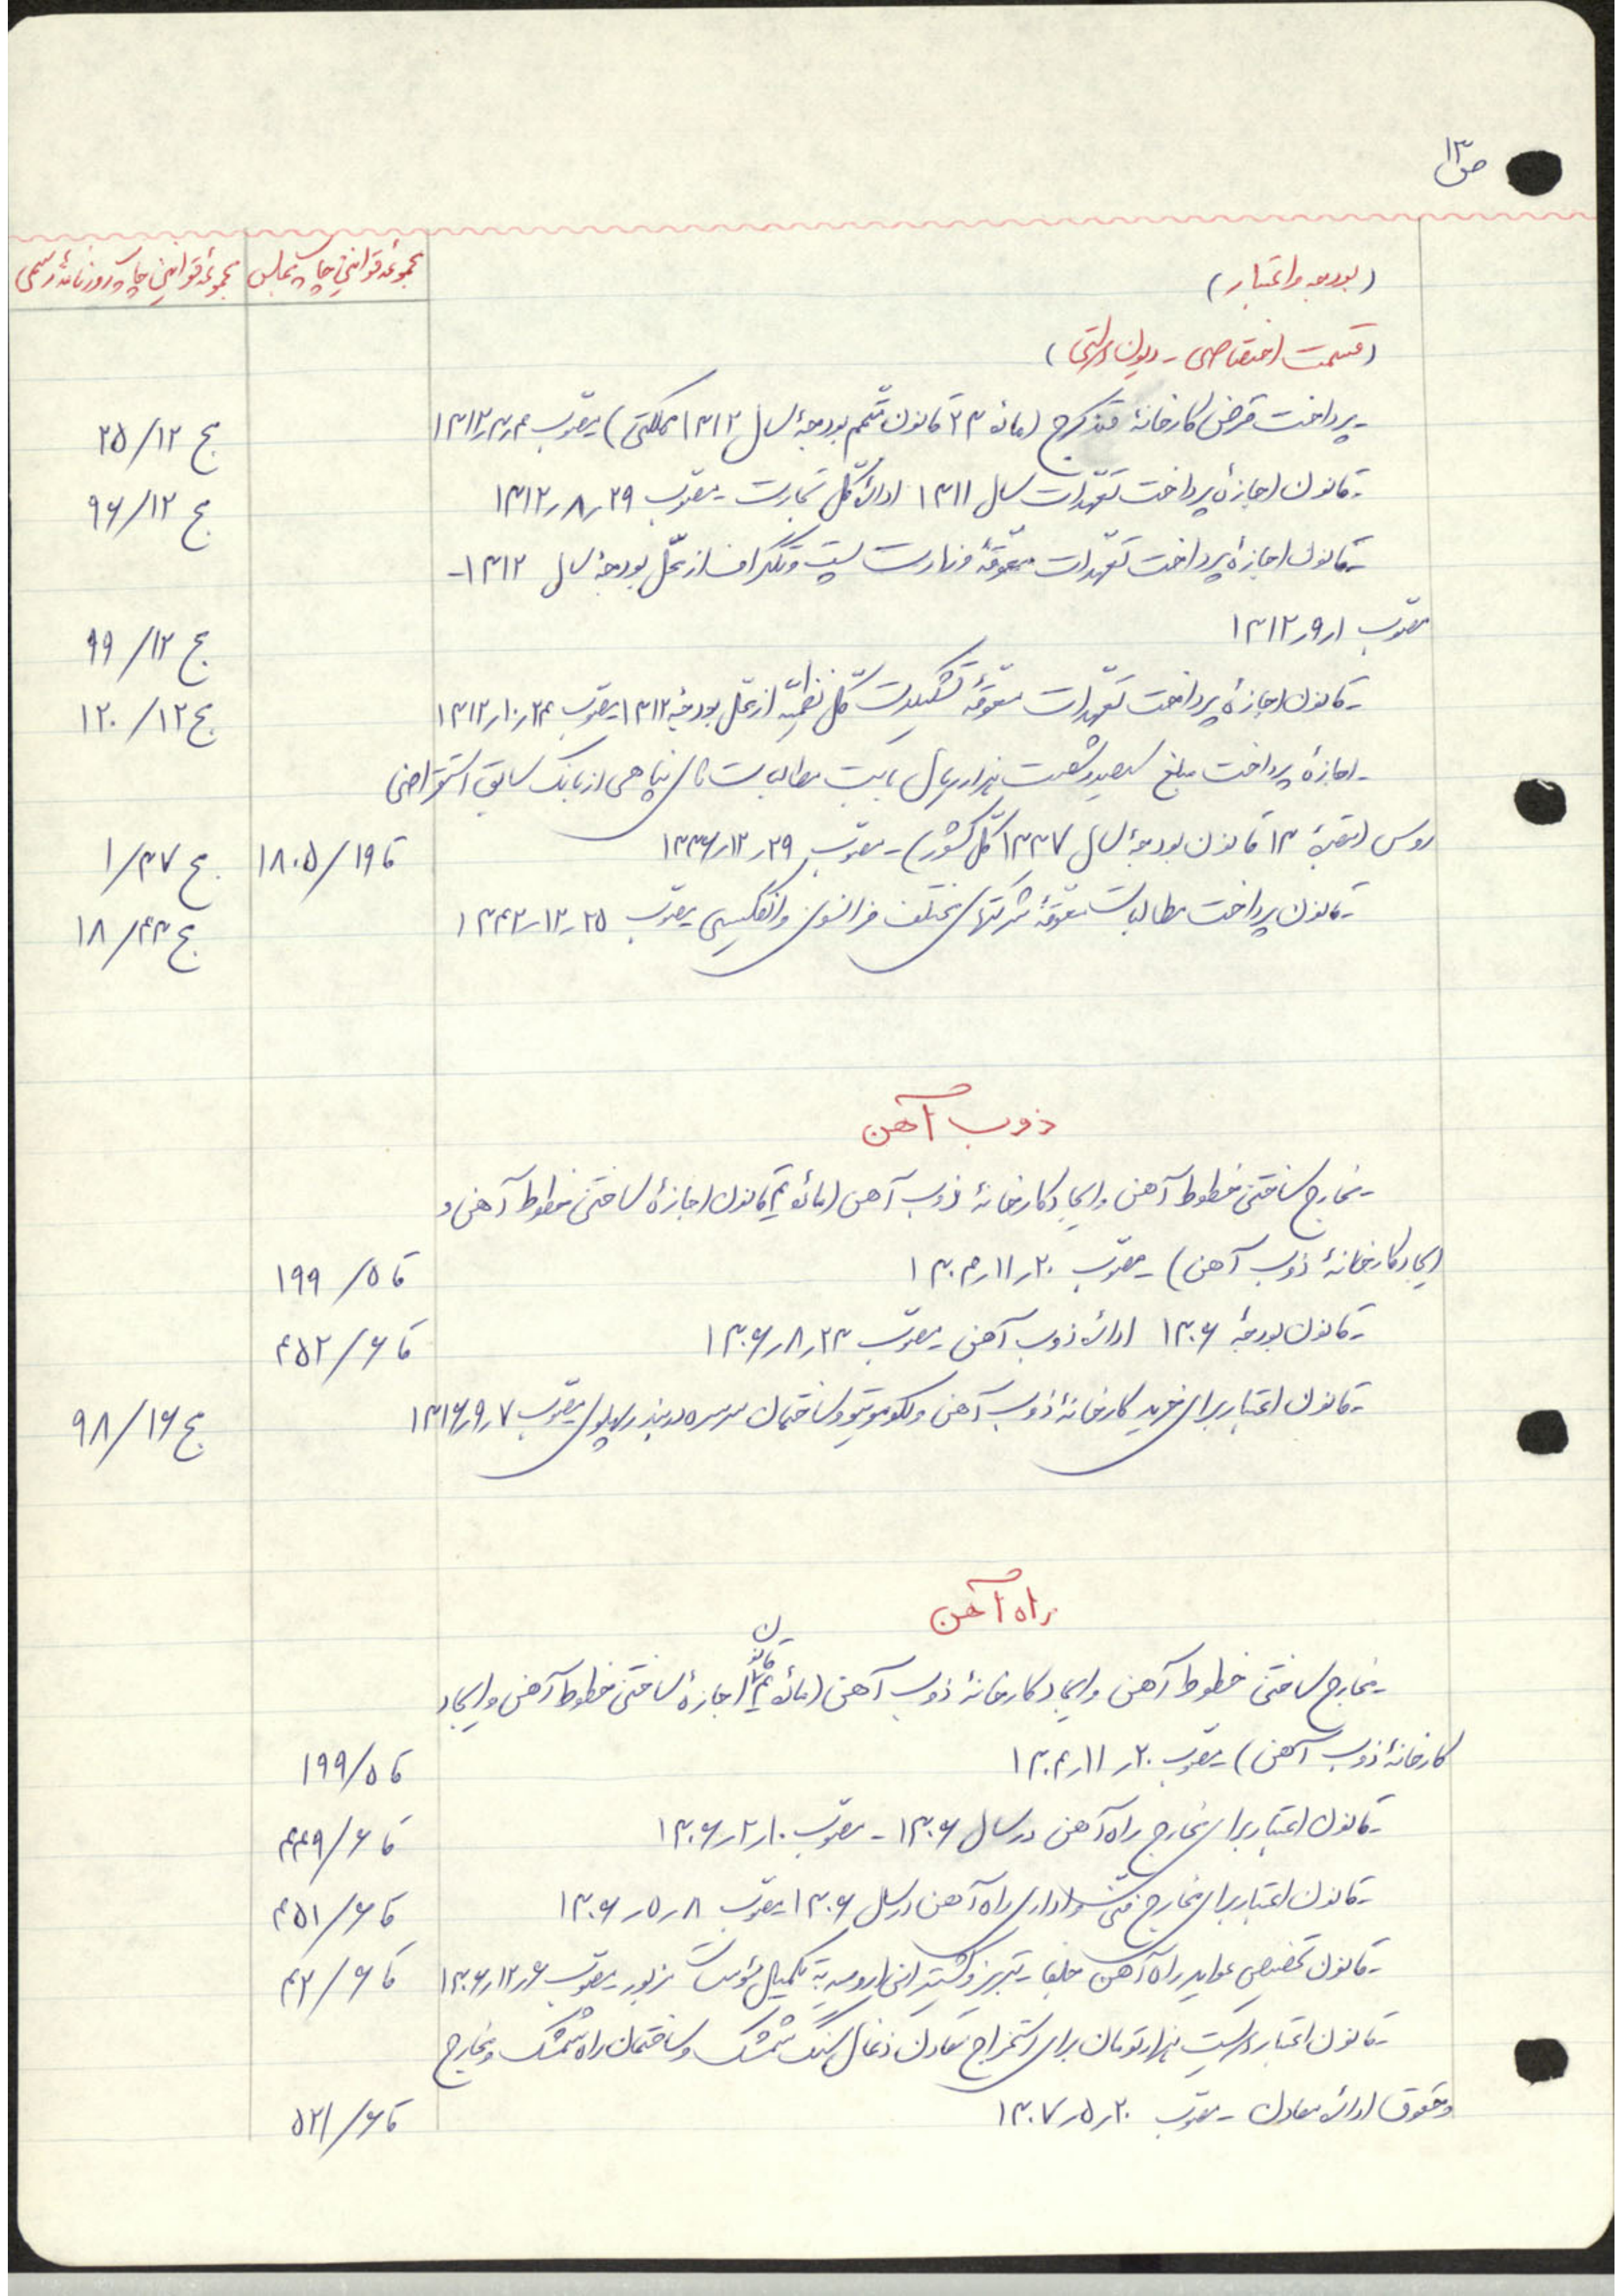 ص ۱۳
مجموعه قوانین چاپ مجلس
مجموعهٔ قوانین چاپ روزنامهٔ رسمی
(بودجه و اعتبار)
(قسمت اختصاصی - دیون دولتی)
- پرداخت قرض کارخانهٔ قند کرج (مادهٔ ۲۳ قانون متمّم بودجهٔ سال ۱۳۱۲ مملکتی) مصوّب ۱۳۱۲٫۳٫۴ ج ۲۵/۱۲
- قانون اجازهٔ پرداخت تعهّدات سال ۱۳۱۱ ادارهٔ کلّ تجارت - مصوّب ۱۳۱۲٫۸٫۲۹ ج ۹۶/۱۲
- قانون اجازهٔ پرداخت تعهّدات معوّقهٔ وزارت پست و تلگراف از محلّ بودجهٔ سال ۱۳۱۲ -
مصوّب ۱۳۱۲٫۹٫۱ ج ۹۹/۱۲
- قانون اجازهٔ پرداخت تعهّدات معوّقهٔ تشکیلات کلّ نظمیّه از محلّ بودجهٔ ۱۳۱۲ مصوّب ۱۳۱۲٫۱۰٫۲۴ ج ۱۲۰/۱۲
- اجازهٔ پرداخت مبلغ سیصد و شصت هزار ریال بابت مطالبات تاس پناهی از بانک سابق استقراضی
روس (تبصرهٔ ۱۳ قانون بودجهٔ سال ۱۳۳۷ کلّ کشور) - مصوّب ۱۳۳۶٫۱۲٫۲۹ قا ۱۸۰۵/۱۹ ج ۱/۳۷
- قانون پرداخت مطالبات معوّقهٔ شرکتهای مختلف فرانسوی و انگلیسی مصوّب ۱۳۴۲٫۱۲٫۲۵ ج ۱۸/۴۳
ذوب آهن
- مخارج ساختن خطوط آهن و ایجاد کارخانهٔ ذوب آهن (مادهٔ ۲ قانون اجازهٔ ساختن خطوط آهن و
ایجاد کارخانهٔ ذوب آهن) - مصوّب ۱۳۰۴٫۱۱٫۲۰ قا ۱۹۹/۵
- قانون بودجهٔ ۱۳۰۶ ادارهٔ ذوب آهن - مصوّب ۱۳۰۶٫۸٫۲۳ قا ۴۵۲/۶
- قانون اعتبار برای خرید کارخانهٔ ذوب آهن و لکوموتیو و ساختمان سرسره در بندر پهلوی مصوّب ۱۳۱۶٫۹٫۷ ج ۹۸/۱۶
راه آهن
- مخارج ساختن خطوط آهن و ایجاد کارخانهٔ ذوب آهن (مادهٔ ۲ قانون اجازهٔ ساختن خطوط آهن و ایجاد
کارخانهٔ ذوب آهن) - مصوّب ۱۳۰۴٫۱۱٫۲۰ قا ۱۹۹/۵
- قانون اعتبار برای مخارج راه آهن در سال ۱۳۰۶ - مصوّب ۱۳۰۶٫۲٫۱۰ قا ۴۴۹/۶
- قانون اعتبار برای مخارج فنّی و اداری راه آهن در سال ۱۳۰۶ مصوّب ۱۳۰۶٫۵٫۸ قا ۴۵۱/۶
- قانون تخصیص عواید راه آهن جلفا - تبریز و کشتیرانی ارومیه به تکمیل مؤسسات مزبور - مصوّب ۱۳۰۶٫۱۲٫۶ قا ۴۲/۶
- قانون اعتبار دویست هزار تومان برای استخراج معادن ذغال سنگ شمشک و ساختمان راه شمشک و مخارج
و حقوق ادارهٔ معادن - مصوّب ۱۳۰۷٫۵٫۲۰ قا ۵۲۱/۶